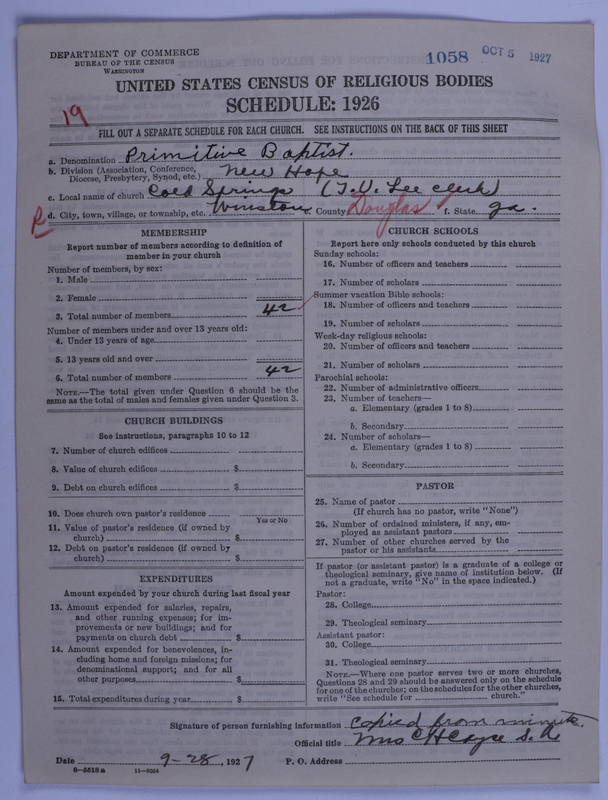 DEPARTMENT OF COMMERCE
BUREAU OF THE CENSUS
WASHINGTON
1058 OCT 5 1927
UNITED STATES CENSUS OF RELIGIOUS BODIES
SCHEDULE: 1926
19
FILL OUT A SEPARATE SCHEDULE FOR EACH CHURCH. SEE INSTRUCTIONS ON THE BACK OF THIS SHEET
a. Denomination Primitive Baptist.
b. Division (Association, Conference, Diocese, Presbytery, Synod, etc.) New Hope
c. Local name of church Cold Springs (T.V. Lee clerk)
R d. City, town, village, or township, etc. Winston e. County Douglas f. State Ga.
MEMBERSHIP
Report number of members according to definition of
member in your church
Number of members, by sex:
1. Male
2. Female
3. Total number of members 42
Number of members under and over 13 years old:
4. Under 13 years of age
5. 13 years old and over
6. Total number of members 42
NOTE.—The total given under Question 6 should be
same as the total of males and females given under Question 3.
CHURCH BUILDINGS
See instructions, paragraphs 10 to 12
7. Number of church edifices
8. Value of church edifices $
9. Debt on church edifices $
10. Does church own pastor's residence
Yes or No
11. Value of pastor's residence (if owned by
church) $
12. Debt on pastor's residence (if owned by
church) $
EXPENDITURES
Amount expended by your church during last fiscal year
13. Amount expended for salaries, repairs,
and other running expenses; for im-
provements or new buildings; and for
payments on church debt $
14. Amount expended for benevolences, in-
cluding home and foreign missions; for
denominational support; and for all
other purposes $
15. Total expenditures during year $
CHURCH SCHOOLS
Report here only schools conducted by this church
Sunday schools:
16. Number of officers and teachers
17. Number of scholars
Summer vacation Bible schools:
18. Number of officers and teachers
19. Number of scholars
Week-day religious schools:
20. Number of officers and teachers
21. Number of scholars
Parochial schools:
22. Number of administrative officers
23. Number of teachers—
a. Elementary (grades 1 to 8)
b. Secondary
24. Number of scholars—
a. Elementary (grades 1 to 8)
b. Secondary
PASTOR
25. Name of pastor
(If church has no pastor, write "None")
26. Number of ordained ministers, if any, em-
ployed as assistant pastors
27. Number of other churches served by the
pastor or his assistants
If pastor (or assistant pastor) is a graduate of a college or
theological seminary, give name of institution below. (If
not a graduate, write "No" in the space indicated.)
Pastor:
28. College
29. Theological seminary
Assistant pastor:
30. College
31. Theological seminary
NOTE.—Where one pastor serves two or more churches,
Questions 28 and 29 should be answered only on the schedule
for one of the churches; on the schedules for the other churches,
write "See schedule for church."
Signature of person furnishing information Copied from minute.
Official title Mrs C H Cayce S. A.
Date 9-28, 1927 P. O. Address
8-5518 a 11-9054